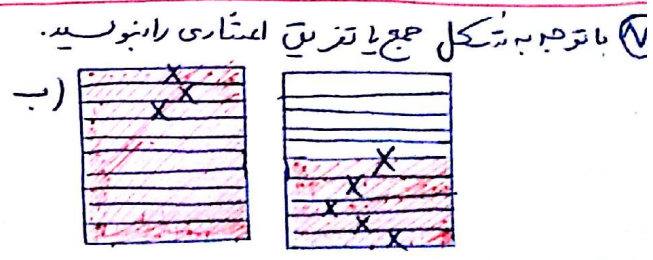 ۷ با توجه به شکل جمع یا تفریق اعشاری را بنویسید.
ب)